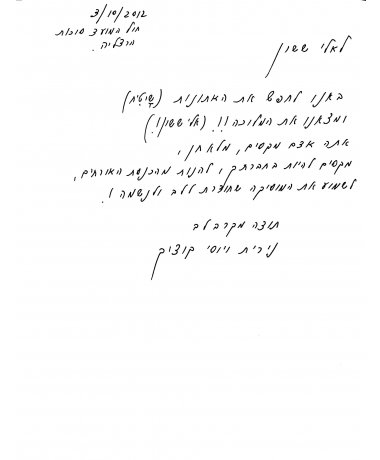 3/10/2012
חול המועד סוכות
הרצליה.
לאלי ששון
באנו לחפש את האתונות (שטיח)
ומצאנו את המלוכה!! (אלי ששון!)
אתה אדם מקסים, מלא חן,
מקסים להיות בחברתך, להנות מהכנסת האורחים,
לשמוע את המוסיקה שחודרת ללב ולנשמה!
תודה מקרב לב
נירית ויוסי קוציק